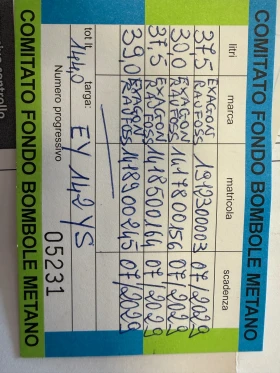 COMITATO FONDO BOMBOLE METANO
litri marca matricola scadenza
37,5 EXAGON RAUFOSS 1912300003 07/2029
30,0 EXAGON RAUFOSS 1417800156 07/2029
37,5 EXAGON RAUFOSS 1418500164 07/2029
39,0 EXAGON RAUFOSS 1418900245 07/2029
tot lt. 144,0 targa: EY 142 YS
Numero progressivo 05231
COMITATO FONDO BOMBOLE METANO